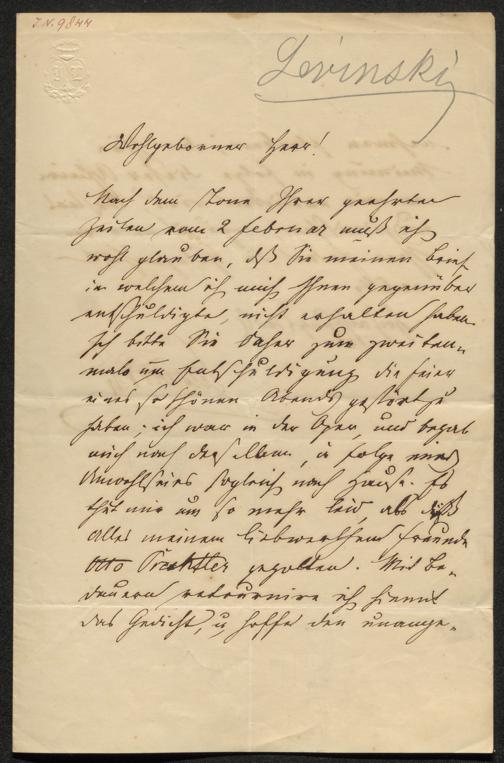 J.N. 9844
Levinski
Wohlgeborner Herr!
Nach dem Tone Ihrer geehrten
Zeilen vom 2 Februar muß ich
wohl glauben, daß Sie meinen Brief
in welchem ich mich Ihnen gegenüber
entschuldigte, nicht erhalten haben.
Ich bitte Sie daher zum zweiten-
male um Entschuldigung die Feier
eines so schönen Abends gestört zu
haben; ich war in der Oper, und begab
mich nach derselben, in Folge eines
Unwohlseins sogleich nach Hause. Es
thut mir um so mehr leid, als dieß
Alles meinem liebwerthen Freunde
Otto Prechtler gegolten. Mit Be-
dauern retournire ich hiemit
das Gedicht, u hoffe den unange-